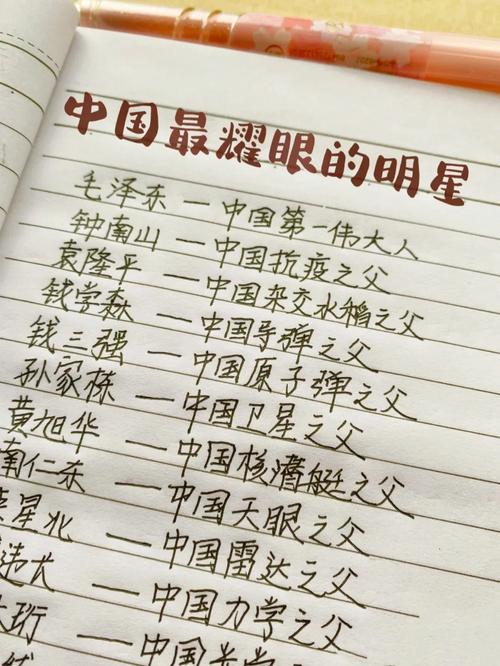 中国最耀眼的明星
毛泽东 — 中国第一伟大人
钟南山 — 中国抗疫之父
袁隆平 — 中国杂交水稻之父
钱学森 — 中国导弹之父
钱三强 — 中国原子弹之父
孙家栋 — 中国卫星之父
黄旭华 — 中国核潜艇之父
南仁东 — 中国天眼之父
星北 — 中国雷达之父
伟大 — 中国力学之父
珩 — 中国光学之父